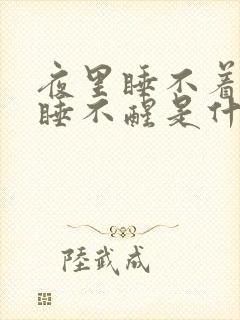 夜里睡不着
睡不醒是什
陸武成